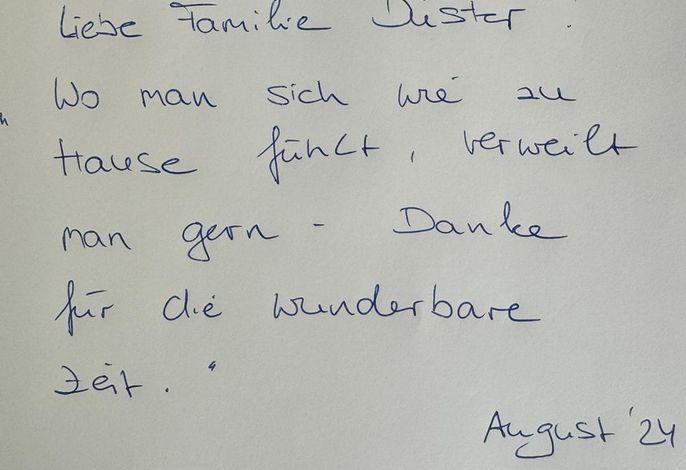 Liebe Familie Düster!
Wo man sich wie zu
Hause fühlt, verweilt
man gern - Danke
für die wunderbare
Zeit. "
August '24